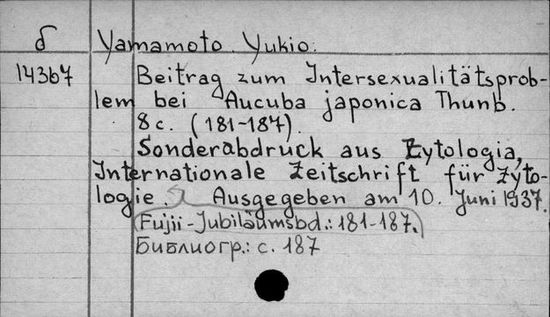 б Yamamoto Yukio:
14367 Beitrag zum Intersexualitätsprob-
lem bei Aucuba japonica Thunb.
8 c. (181-187).
Sonderabdruck aus Zytologia,
Internationale Zeitschrift für Zyto-
logie. Ausgegeben am 10. Juni 1937.
Fujii-Jubiläumsbd.: 181-187.
Библиогр.: с. 187